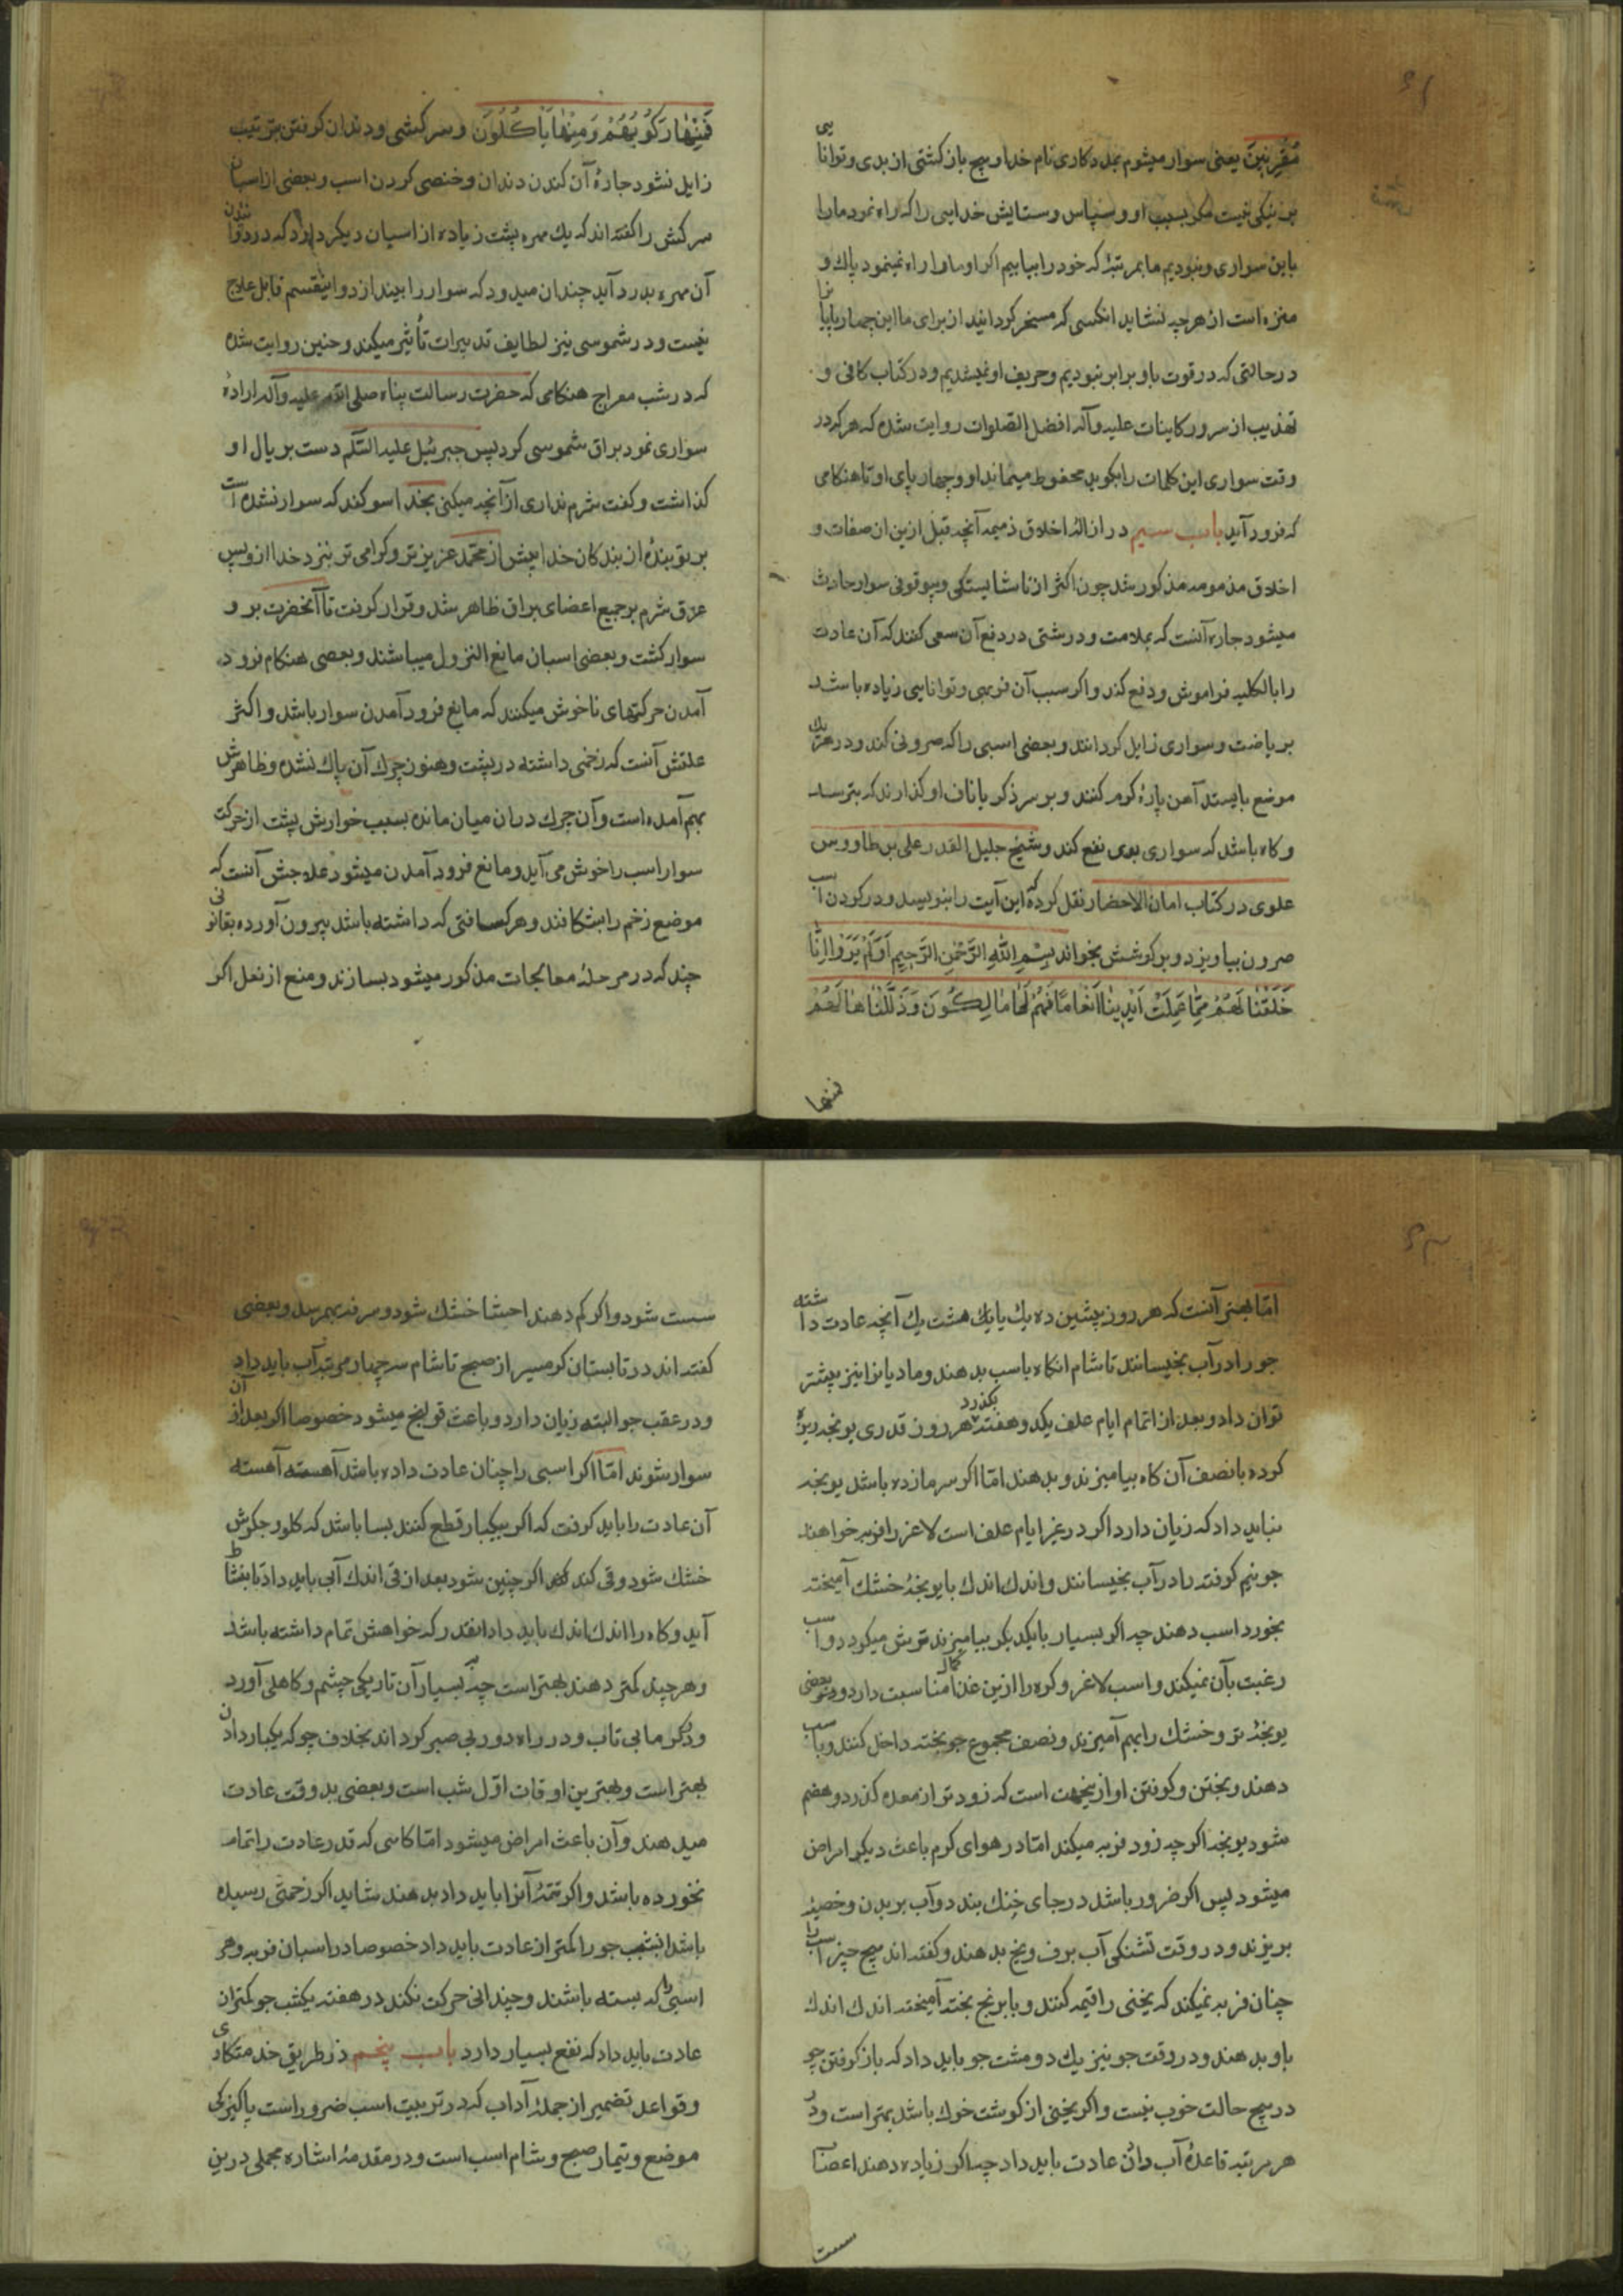 مُقْرِنینَ یعنی سوار میشوم بمددکاری نام خدا و هیچ بازگشتی از بدی و توانایی
بر نیکی نیست مگر بسبب او و سپاس و ستایش خدایی را که راه نمود ما را
باین سواری و نبودیم ما بمرتبهٔ که خود راه یابیم اگر او ما را راه نمینمود پاک و
منزه است از هر چه نشاید انکسی که مسخر گردانید از برای ما این چهارپایا نرا
در حالتی که در قوت باو برابر نبودیم و حریف او نمیشدیم و در کتاب کافی و
تهذیب از سرور کاینات علیه و آله افضل الصلوات روایت شده که هر که در
وقت سواری این کلمات را بگوید محفوظ میماند او و چهارپای او تا هنگامی
که فرود آید باب سیم در ازالهٔ اخلاق ذمیمه آنچه قبل ازین از صفات و
اخلاق مذمومه مذکور شد چون اکثر از ناشایستگی و بیوقوفی سوار حادث
میشود چاره آنست که بملامت و درشتی در دفع آن سعی کنند که آن عادت
را بالکلیه فراموش و دفع کند و اگر سبب آن فربهی و توانایی زیاده باشد
بریاضت و سواری زایل گردانند و بعضی اسبی را که حرونی کند و در هر یک
موضع بایستد آهن پارهٔ گرم کنند و بر سر ذکر یا ناف او گذارند که بترسد
و گاه باشد که سواری بوی نفع کند و شیخ جلیل القدر علی بن طاووس
علوی در کتاب امان الاخطار نقل کرده که این آیت را بنویسد و در گردن اسب
حرون بیاویزد و بر گوشش بخواند بِسْمِ اللّٰهِ الرَّحْمٰنِ الرَّحِیمِ اَوَلَمْ یَرَوْا اَنّٰا
خَلَقْنٰا لَهُمْ مِمّٰا عَمِلَتْ اَیْدِینٰا اَنْعٰامًا فَهُمْ لَهٰا مٰالِکُونَ وَ ذَلَّلْنٰاهٰا لَهُمْ
فمنها
فَمِنْهٰا رَکُوبُهُمْ وَ مِنْهٰا یَأْکُلُونَ و سرکشی و دندان گرفتن بتربیت
زایل نشود چارهٔ آن کندن دندان و خصی کردن اسب و بعضی از اسبان
سرکش را گفته اند که یک مهره پشت زیاده از اسبان دیگر دارد که در دویدن
آن مهره بدرد آید چندان میدود که سوار را بیندازد و اینقسم قابل علاج
نیست و در شموسی نیز لطایف تدبیرات تأثیر میکند و چنین روایت شده
که در شب معراج هنگامی که حضرت رسالت پناه صلی الله علیه و آله ارادهٔ
سواری نمود براق شموسی کرد پس جبرئیل علیه السّلم دست بر یال او
گذاشت و گفت شرم نداری از آنچه میکنی بخدا سوگند که سوار نشده است
بر تو بندهٔ از بندگان خدا پیش از محمّد عزیزتر و گرامی تر نزد خدا ازو پس
عرق شرم بر جمیع اعضای براق ظاهر شد و قرار گرفت تا آنحضرت بر و
سوار گشت و بعضی اسبان مانع النزول میباشند و بعضی هنگام فرود
آمدن حرکتهای ناخوش میکنند که مانع فرود آمدن سوار باشد و اکثر
علتش آنست که زخمی داشته در پشت و هنوز چرک آن پاک نشده و ظاهرش
بهم آمده است و آن چرک در ان میان مانده بسبب خوارش پشت از حرکت
سوار اسب را خوش می آید و مانع فرود آمدن میشود علاجش آنست که
موضع زخم را بشکافند و هر کسافتی که داشته باشد بیرون آورده بقانونی
چند که در مرحلهٔ معالجات مذکور میشود بسازند و منع از نعل اگر
امّا بهتر آنست که هر روز پیشین ده یک یا یک هشت یک آنچه عادت داشته
جو را در آب بخیسانند تا شام انگاه باسب بدهند و مادیانرا نیز پیشتر
توان داد و بعد از اتمام ایام علف یکدو هفته بگذرد هر روز قدری یونجه ریزه
کرده با نصف آن کاه بیامیزند و بدهند امّا اگر سرما زده باشد یونجه
نباید داد که زیان دارد اگر در غیر ایام علف است لاغر را فربه خواهند
جو نیم کوفته را در آب بخیسانند و اندک اندک با یونجهٔ خشک آمیخته
بخورد اسب دهند چه اگر بسیار با یکدیگر بیامیزند ترش میگردد و اسب
رغبت بآن نمیکند و اسب لاغر و کره را ازین غذا کمال مناسبت دارد و بعضی
یونجهٔ تر و خشک را بهم آمیزند و نصف مجموع جو پخته داخل کنند و باسب
دهند و پختن و کوفتن او ازینجهت است که زودتر از معده گذرد و هضم
شود یونجه اگر چه زود فربه میکند امّا در هوای گرم باعث دیگر امراض
میشود پس اگر ضرور باشد در جای خنک بندد و آب بر بدن و خصیهٔ
بریزند و در وقت تشنگی آب برف و یخ بدهند و گفته اند هیچ چیز اسب را
چنان فربه نمیکند که یخنی را قیمه کنند و با برنج پخته آمیخته اندک اندک
باو بدهند و در وقت جو نیز یک دو مشت جو باید داد که باز گرفتن جو
در هیچ حالت خوب نیست و اگر یخنی از گوشت خوک باشد بهتر است و در
هر مرتبه قاعدهٔ آب دادن عادت باید داد چه اگر زیاده دهند اعصاب
سست
سست شود و اگر کم دهند احشا خشک شود و سرفه بهم رسد و بعضی
گفته اند در تابستان گرمسیر از صبح تا شام سه چهار مرتبه آب باید داد
و در عقب جو البته زیان دارد و باعث قولنج میشود خصوصا اگر بعد از آن
سوار شوند امّا اگر اسبی را چنان عادت داده باشد آهسته آهسته
آن عادت را باید گرفت که اگر بیکبار قطع کنند بسا باشد که گلو و جگرش
خشک شود و قی کند اگر چنین شود بعد از قی اندک آبی باید داد تا بنشاط
آید و کاه را اندک اندک باید داد انقدر که خواهش تمام داشته باشد
و هر چند کمتر دهند بهتر است چه بسیار آن تاریکی چشم و کاهلی آورد
و در گرما بی تاب و در راه دور بی صبر گرداند بخلاف جو که یکبار دادن
بهتر است و بهترین اوقات اوّل شب است و بعضی بدو وقت عادت
میدهند و آن باعث امراض میشود امّا کاسی که قدر عادت را تمام
نخورده باشد و اگر تتمّهٔ آنرا باید داد بدهند شاید اگر زحمتی رسیده
باشد انشب جو را کمتر از عادت باید داد خصوصا در اسبان فربه و هر
اسبی را که بسته باشند و چندانی حرکت نکند در هفته یکشب جو کمتر از
عادت باید داد که نفع بسیار دارد باب پنجم در طریق خدمتکاری
و قواعد تضمیر از جملهٔ آداب که در تربیت اسب ضرور است پاکیزگی
موضع و تیمار صبح و شام اسب است و در مقدمهٔ اشاره مجملی درین